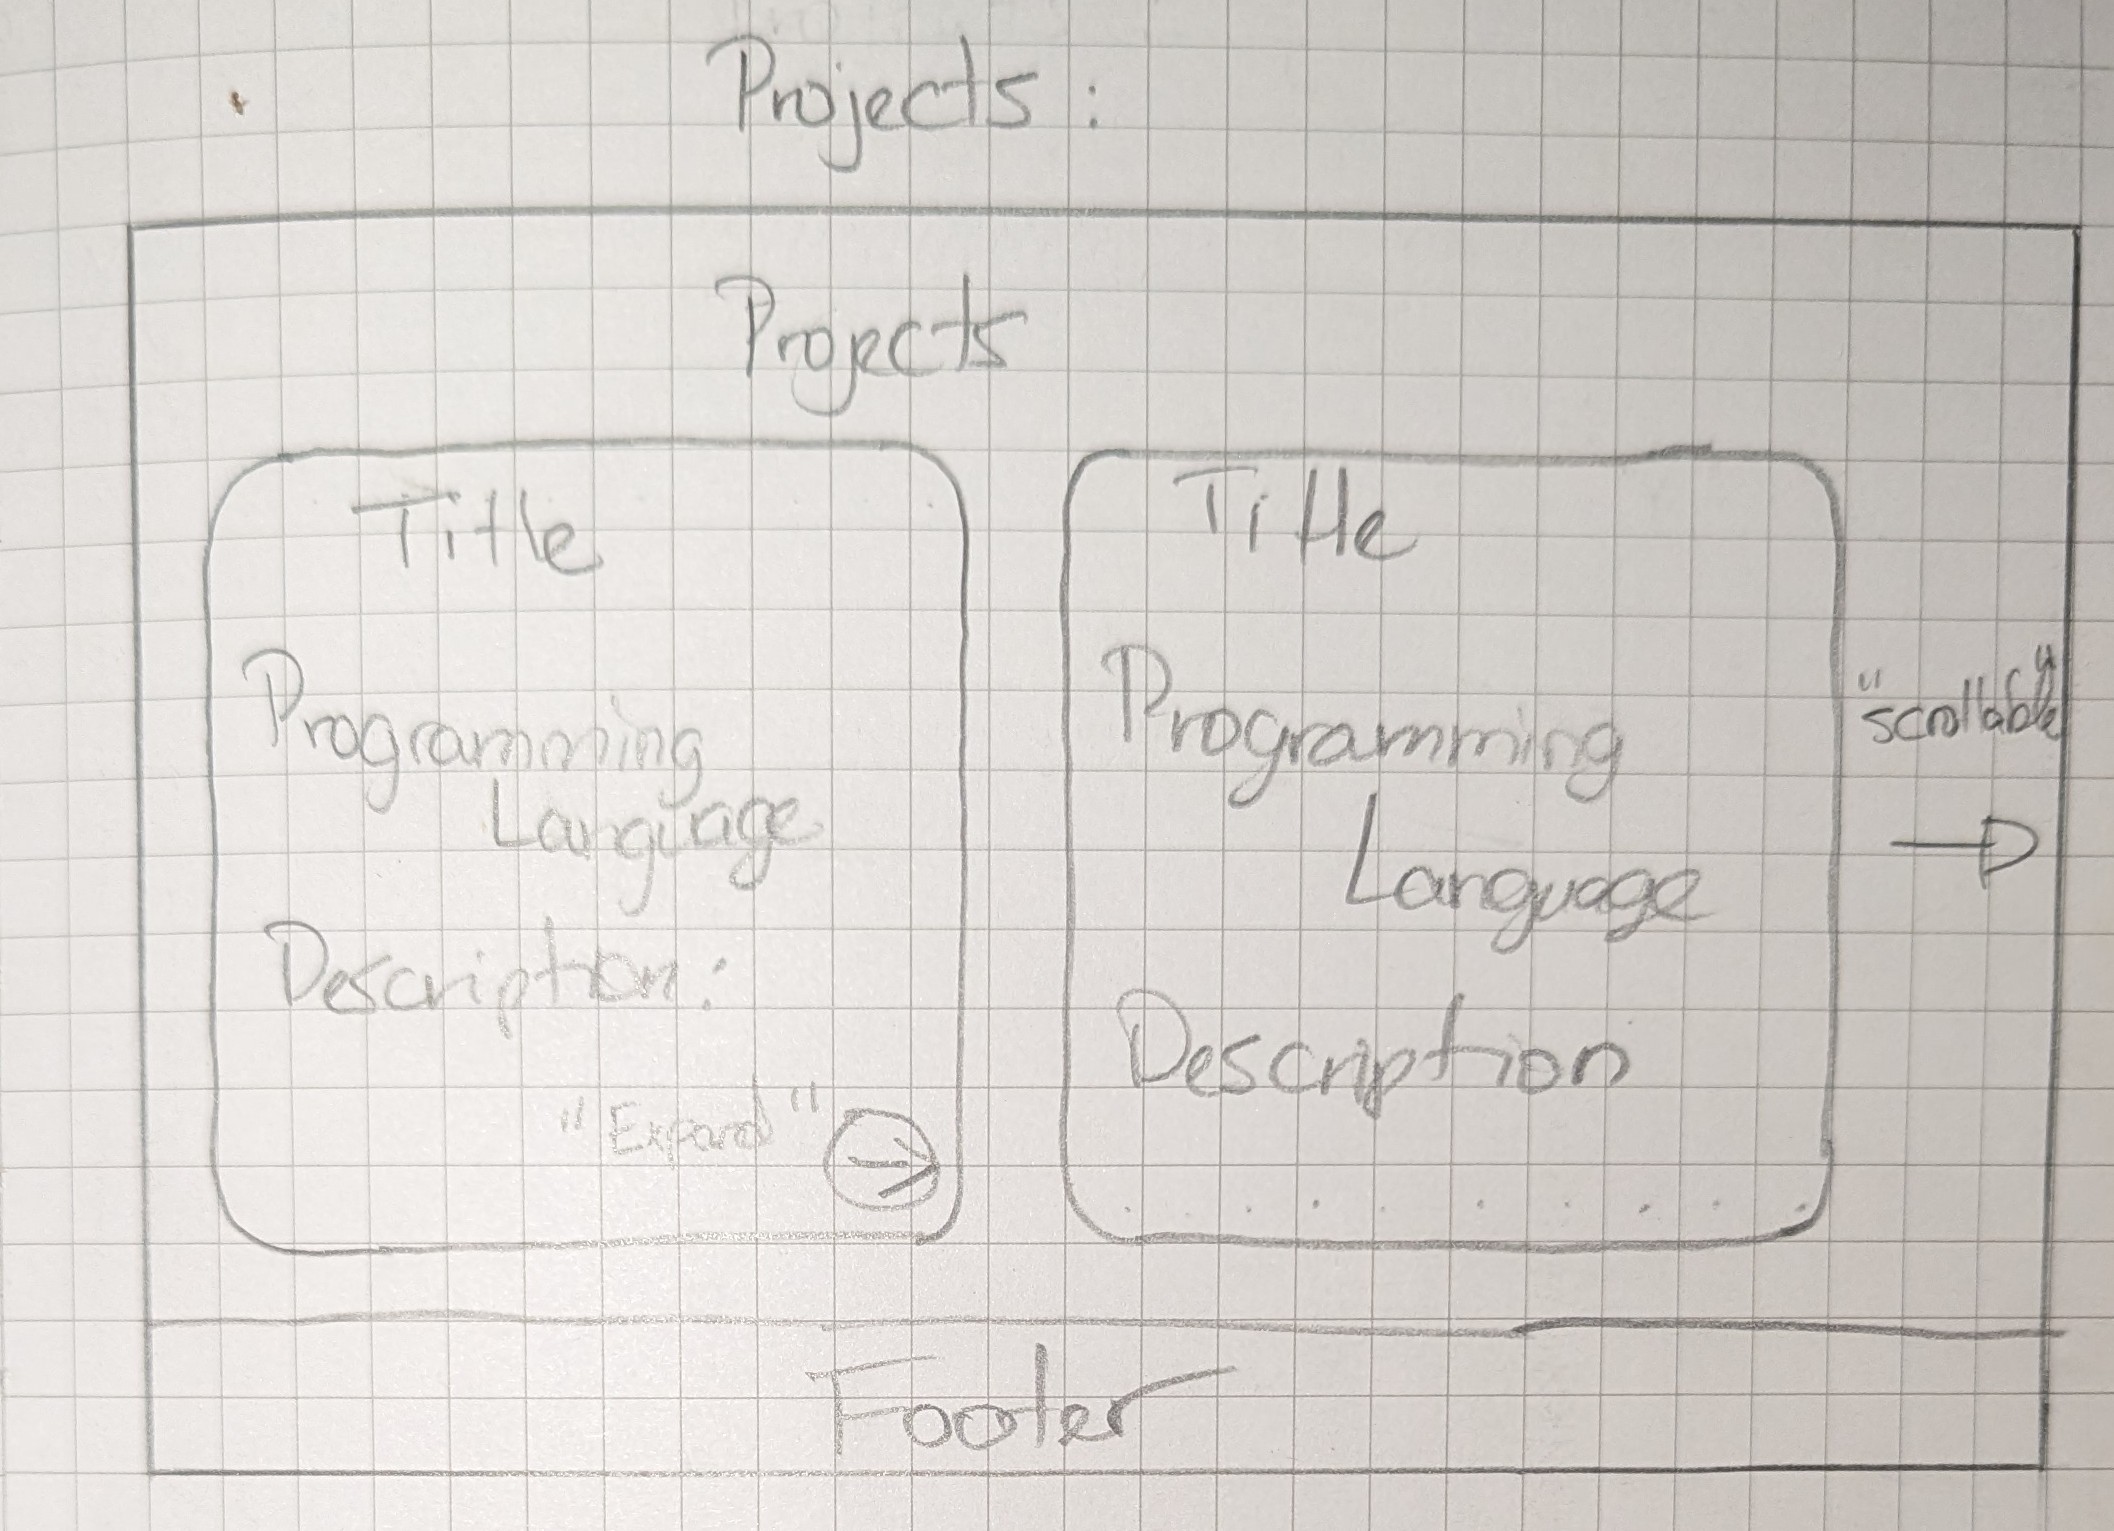 Projects:
Projects
Title
Programming
Language
Description:
"Expand"
Title
Programming
Language
Description
"scrollable"
Footer